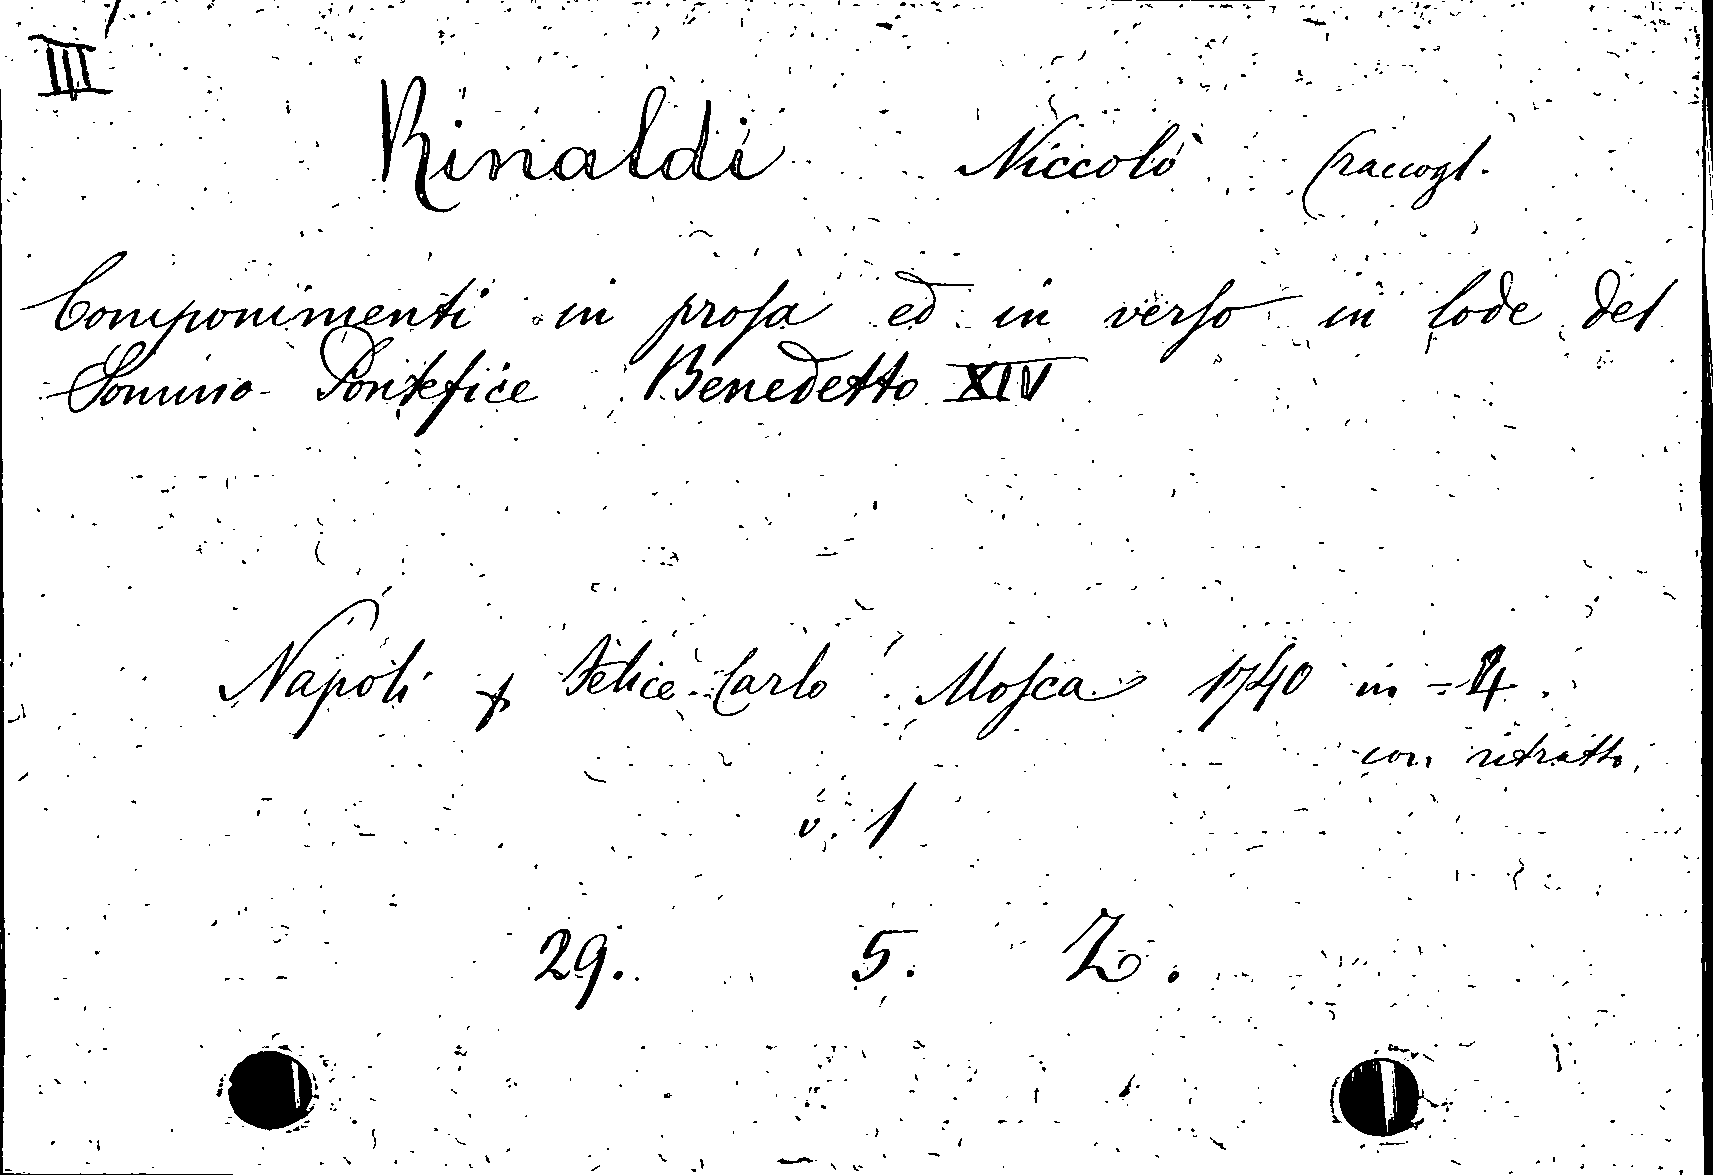 III
Rinaldi Niccolò (raccogl.
Componimenti in prosa ed in verso in lode del
Sommo Pontefice Benedetto XIV
Napoli p Felice Carlo Mosca 1740 in-4.
con ritratto.
v. 1
29. 5. Z.